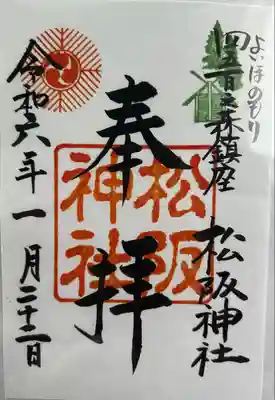 よいほのもり
四五百之森鎮座
松阪神社
奉拝
松阪
神社
令和六年一月二十二日